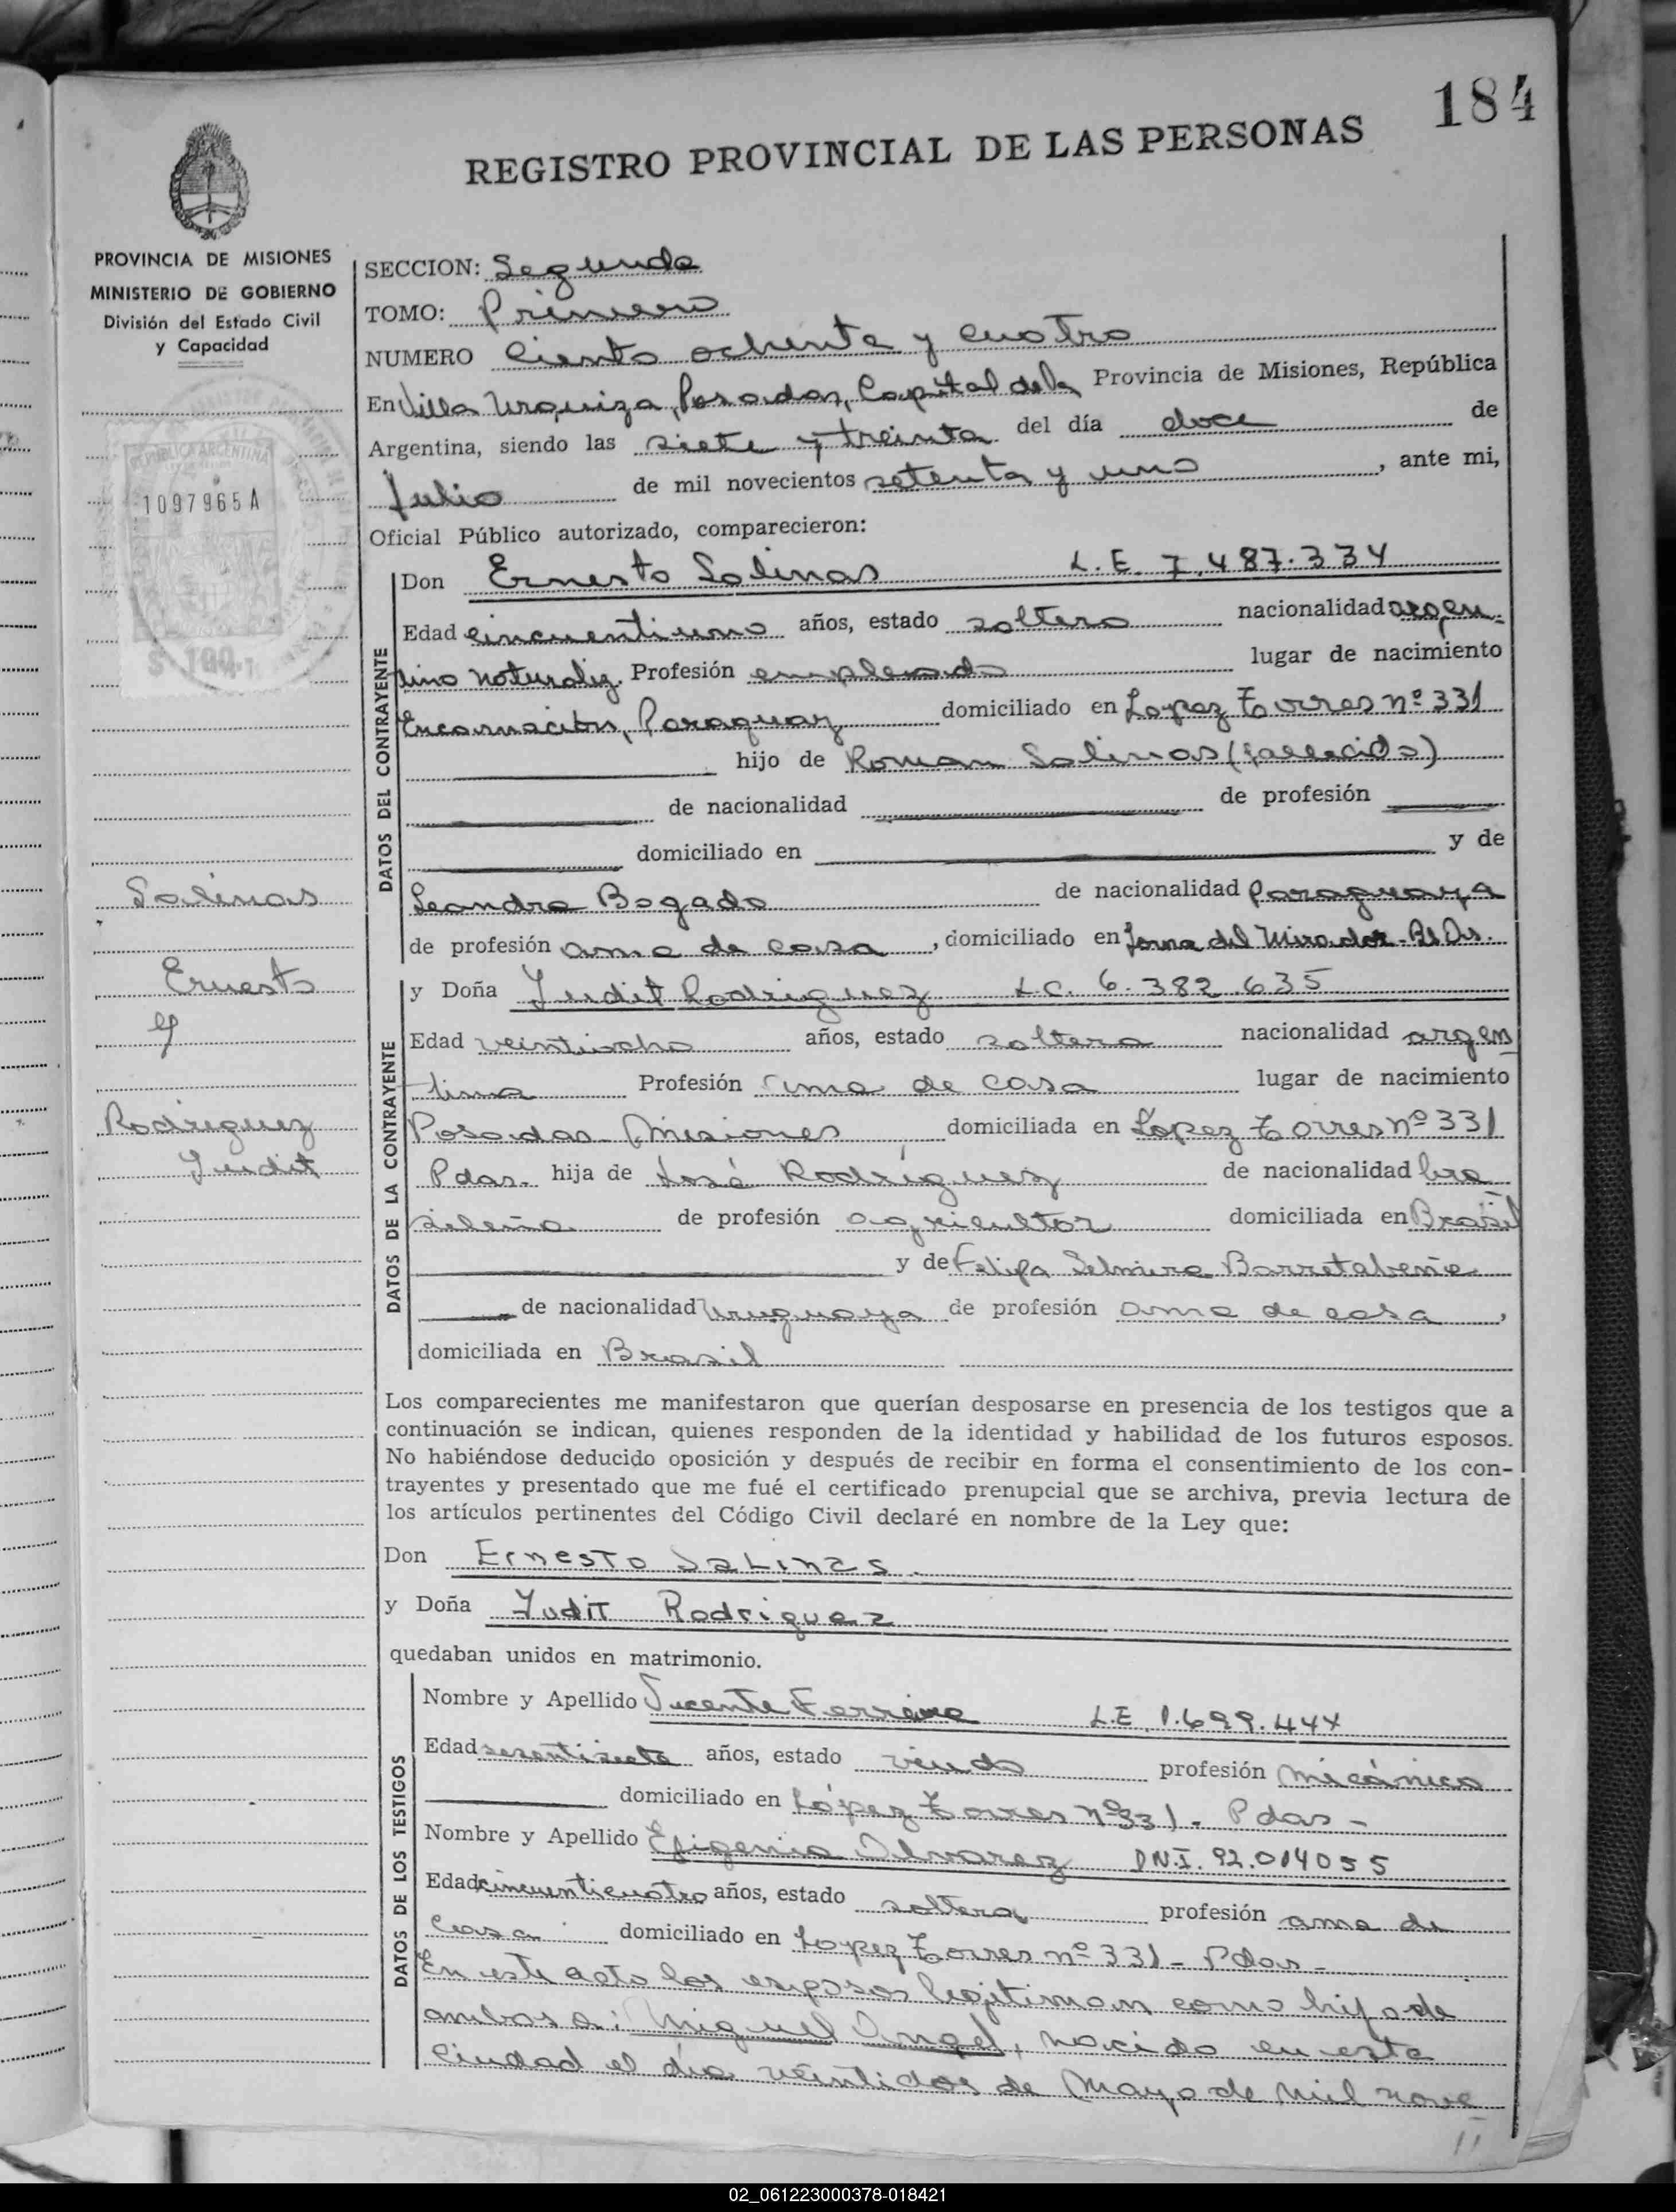 184
REGISTRO PROVINCIAL DE LAS PERSONAS
PROVINCIA DE MISIONES
MINISTERIO DE GOBIERNO
División del Estado Civil
y Capacidad
REPUBLICA ARGENTINA
1097965 A
$ 100
SECCION: Segunda
TOMO: Primero
NUMERO Ciento ochenta y cuatro
En Villa Urquiza, Posadas, Capital de la Provincia de Misiones, República
Argentina, siendo las siete y treinta del día doce de
Julio de mil novecientos setenta y uno, ante mi,
Oficial Público autorizado, comparecieron:
DATOS DEL CONTRAYENTE
Don Ernesto Salinas L.E. 7.487.334
Edad cincuentiuno años, estado soltero nacionalidad argen-
tino naturaliz. Profesión empleado lugar de nacimiento
Encarnación, Paraguay domiciliado en Lopez Torres nº 331
hijo de Roman Salinas (fallecido)
de nacionalidad de profesión
domiciliado en y de
Leandra Bogado de nacionalidad Paraguaya
de profesión ama de casa, domiciliado en Loma del Mirador. Bs As.
Salinas
Ernesto
y
Rodriguez
Yudit
DATOS DE LA CONTRAYENTE
y Doña Yudit Rodriguez L.C. 6.382.635
Edad veintiocho años, estado soltera nacionalidad argen
tina Profesión ama de casa lugar de nacimiento
Posadas Misiones domiciliada en López Torres nº 331
Pdas. hija de José Rodríguez de nacionalidad bra
sileña de profesión agricultor domiciliada en Brasil
y de Felipa Selmira Barretabeña
de nacionalidad Uruguaya de profesión ama de casa,
domiciliada en Brasil
Los comparecientes me manifestaron que querían desposarse en presencia de los testigos que a
continuación se indican, quienes responden de la identidad y habilidad de los futuros esposos.
No habiéndose deducido oposición y después de recibir en forma el consentimiento de los con-
trayentes y presentado que me fué el certificado prenupcial que se archiva, previa lectura de
los artículos pertinentes del Código Civil declaré en nombre de la Ley que:
Don Ernesto Salinas
y Doña Yudit Rodriguez
quedaban unidos en matrimonio.
DATOS DE LOS TESTIGOS
Nombre y Apellido Vicente Ferreira L.E. 1.699.444
Edad sesentisiete años, estado viudo profesión mecánico
domiciliado en López Torres nº 331. Pdas -
Nombre y Apellido Efigenia Alvarez D.N.I. 92.014055
Edad cincuenticuatro años, estado soltera profesión ama de
casa domiciliado en Lopez Torres nº 331 - Pdas -
En este acto los esposos legitiman como hijo de
ambos a: Miguel Angel, nacido en esta
Ciudad el día veintidos de Mayo de mil nove
//
02_061223000378-018421